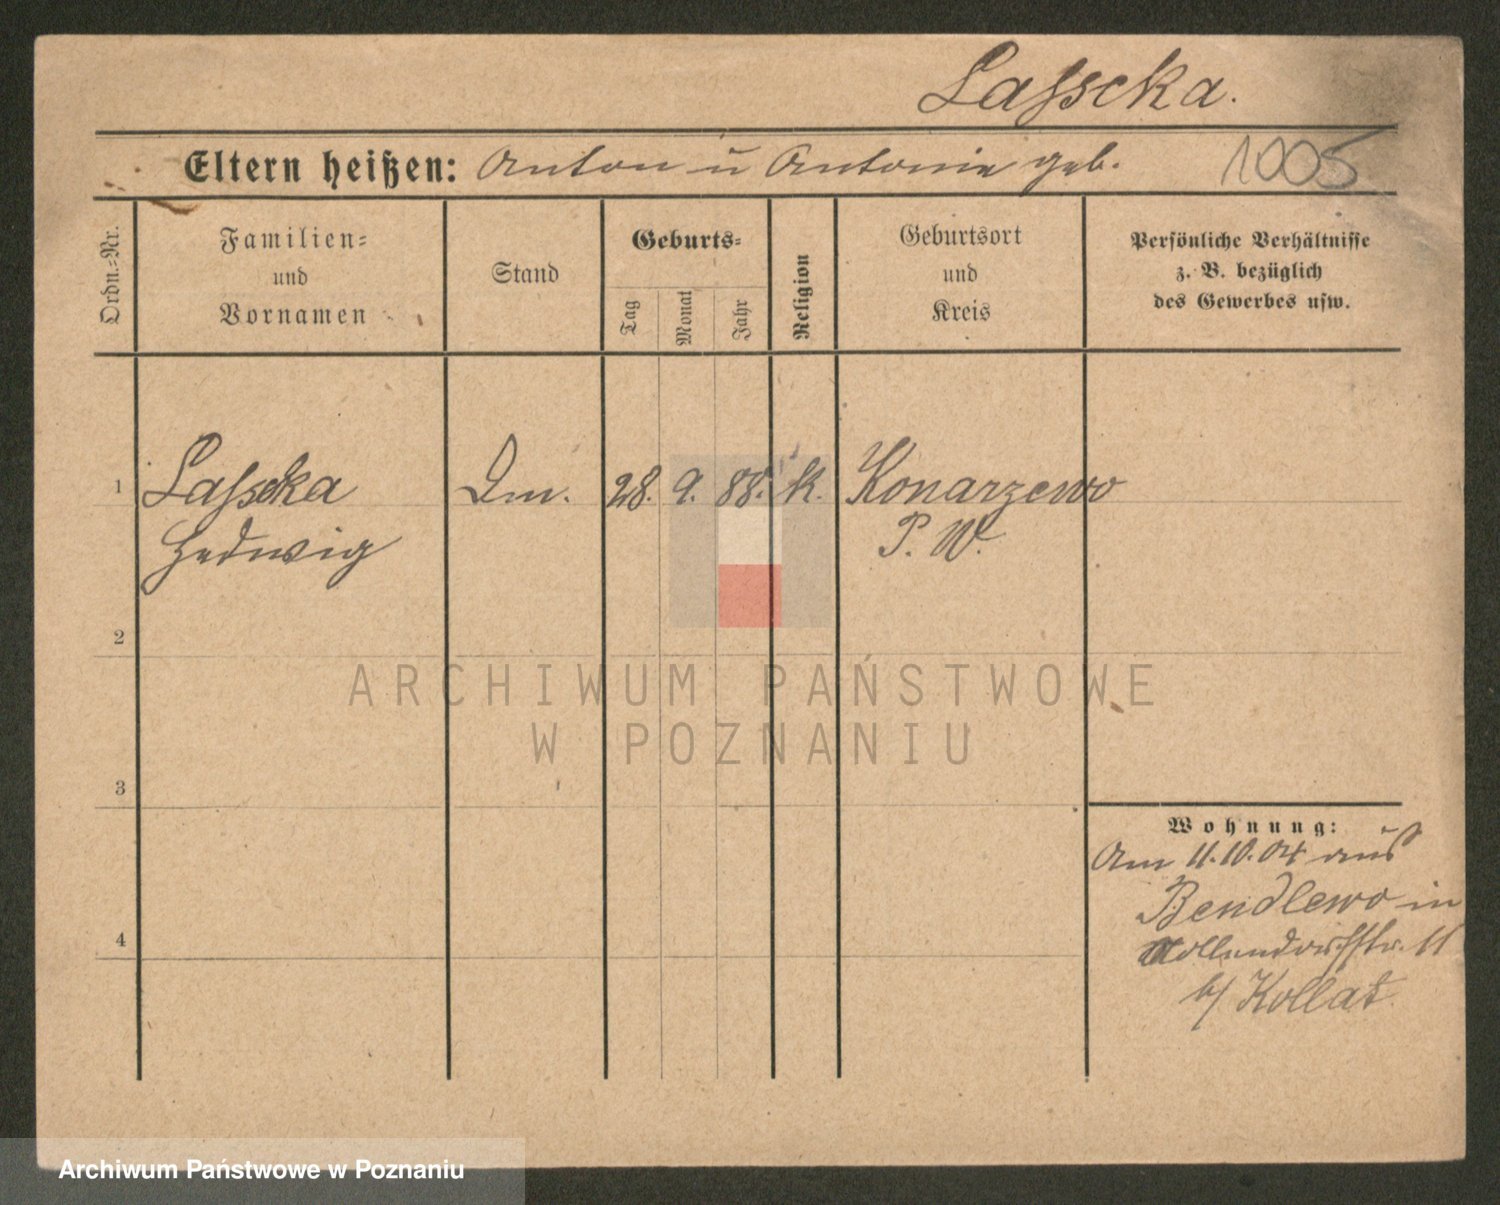 Lasscka.
Eltern heißen: Anton u Antonie geb.
1005
Ordn.-Nr.
Familien-
und
Vornamen
Stand
Geburts-
Tag
Monat
Jahr
Religion
Geburtsort
und
Kreis
Persönliche Verhältnisse
z. B. bezüglich
des Gewerbes usw.
1
Lasscka
Hedwig
Dm.
28. 9. 88.
k.
Konarzewo
P. W.
2
3
4
Wohnung:
Am 11.10.04 aus
Bendlewo in
Nollendorfstr. 11
b/ Kollat
ARCHIWUM PAŃSTWOWE
W POZNANIU
Archiwum Państwowe w Poznaniu